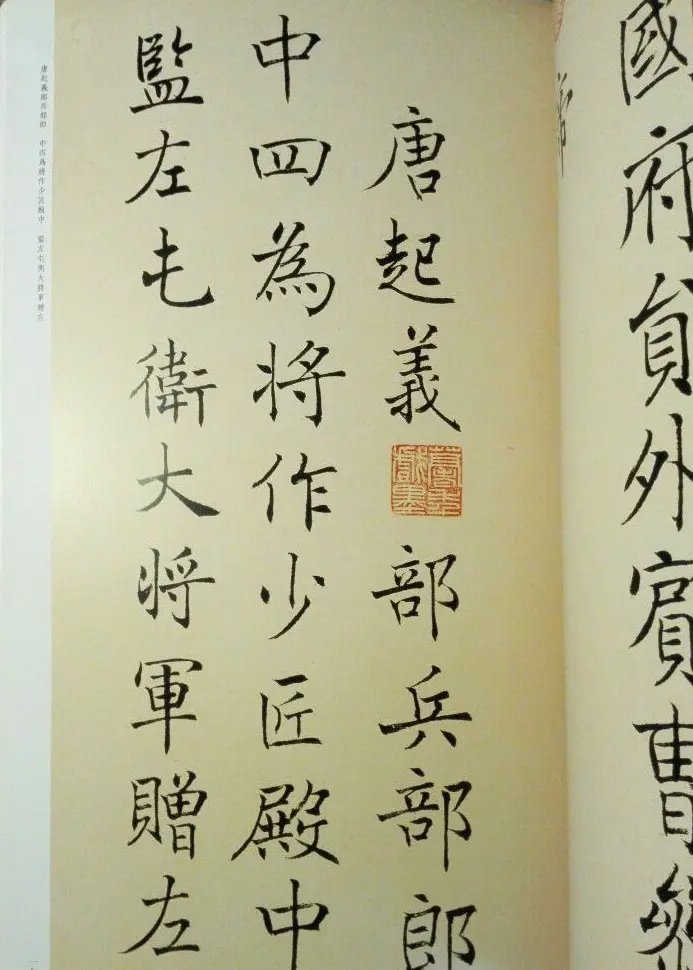 國府貟外賔曹
唐起義部兵部郎
中四為将作少匠殿中
監左屯衛大将軍贈左
唐起義部兵部郎 中四為將作少匠殿中 監左屯衛大將軍贈左